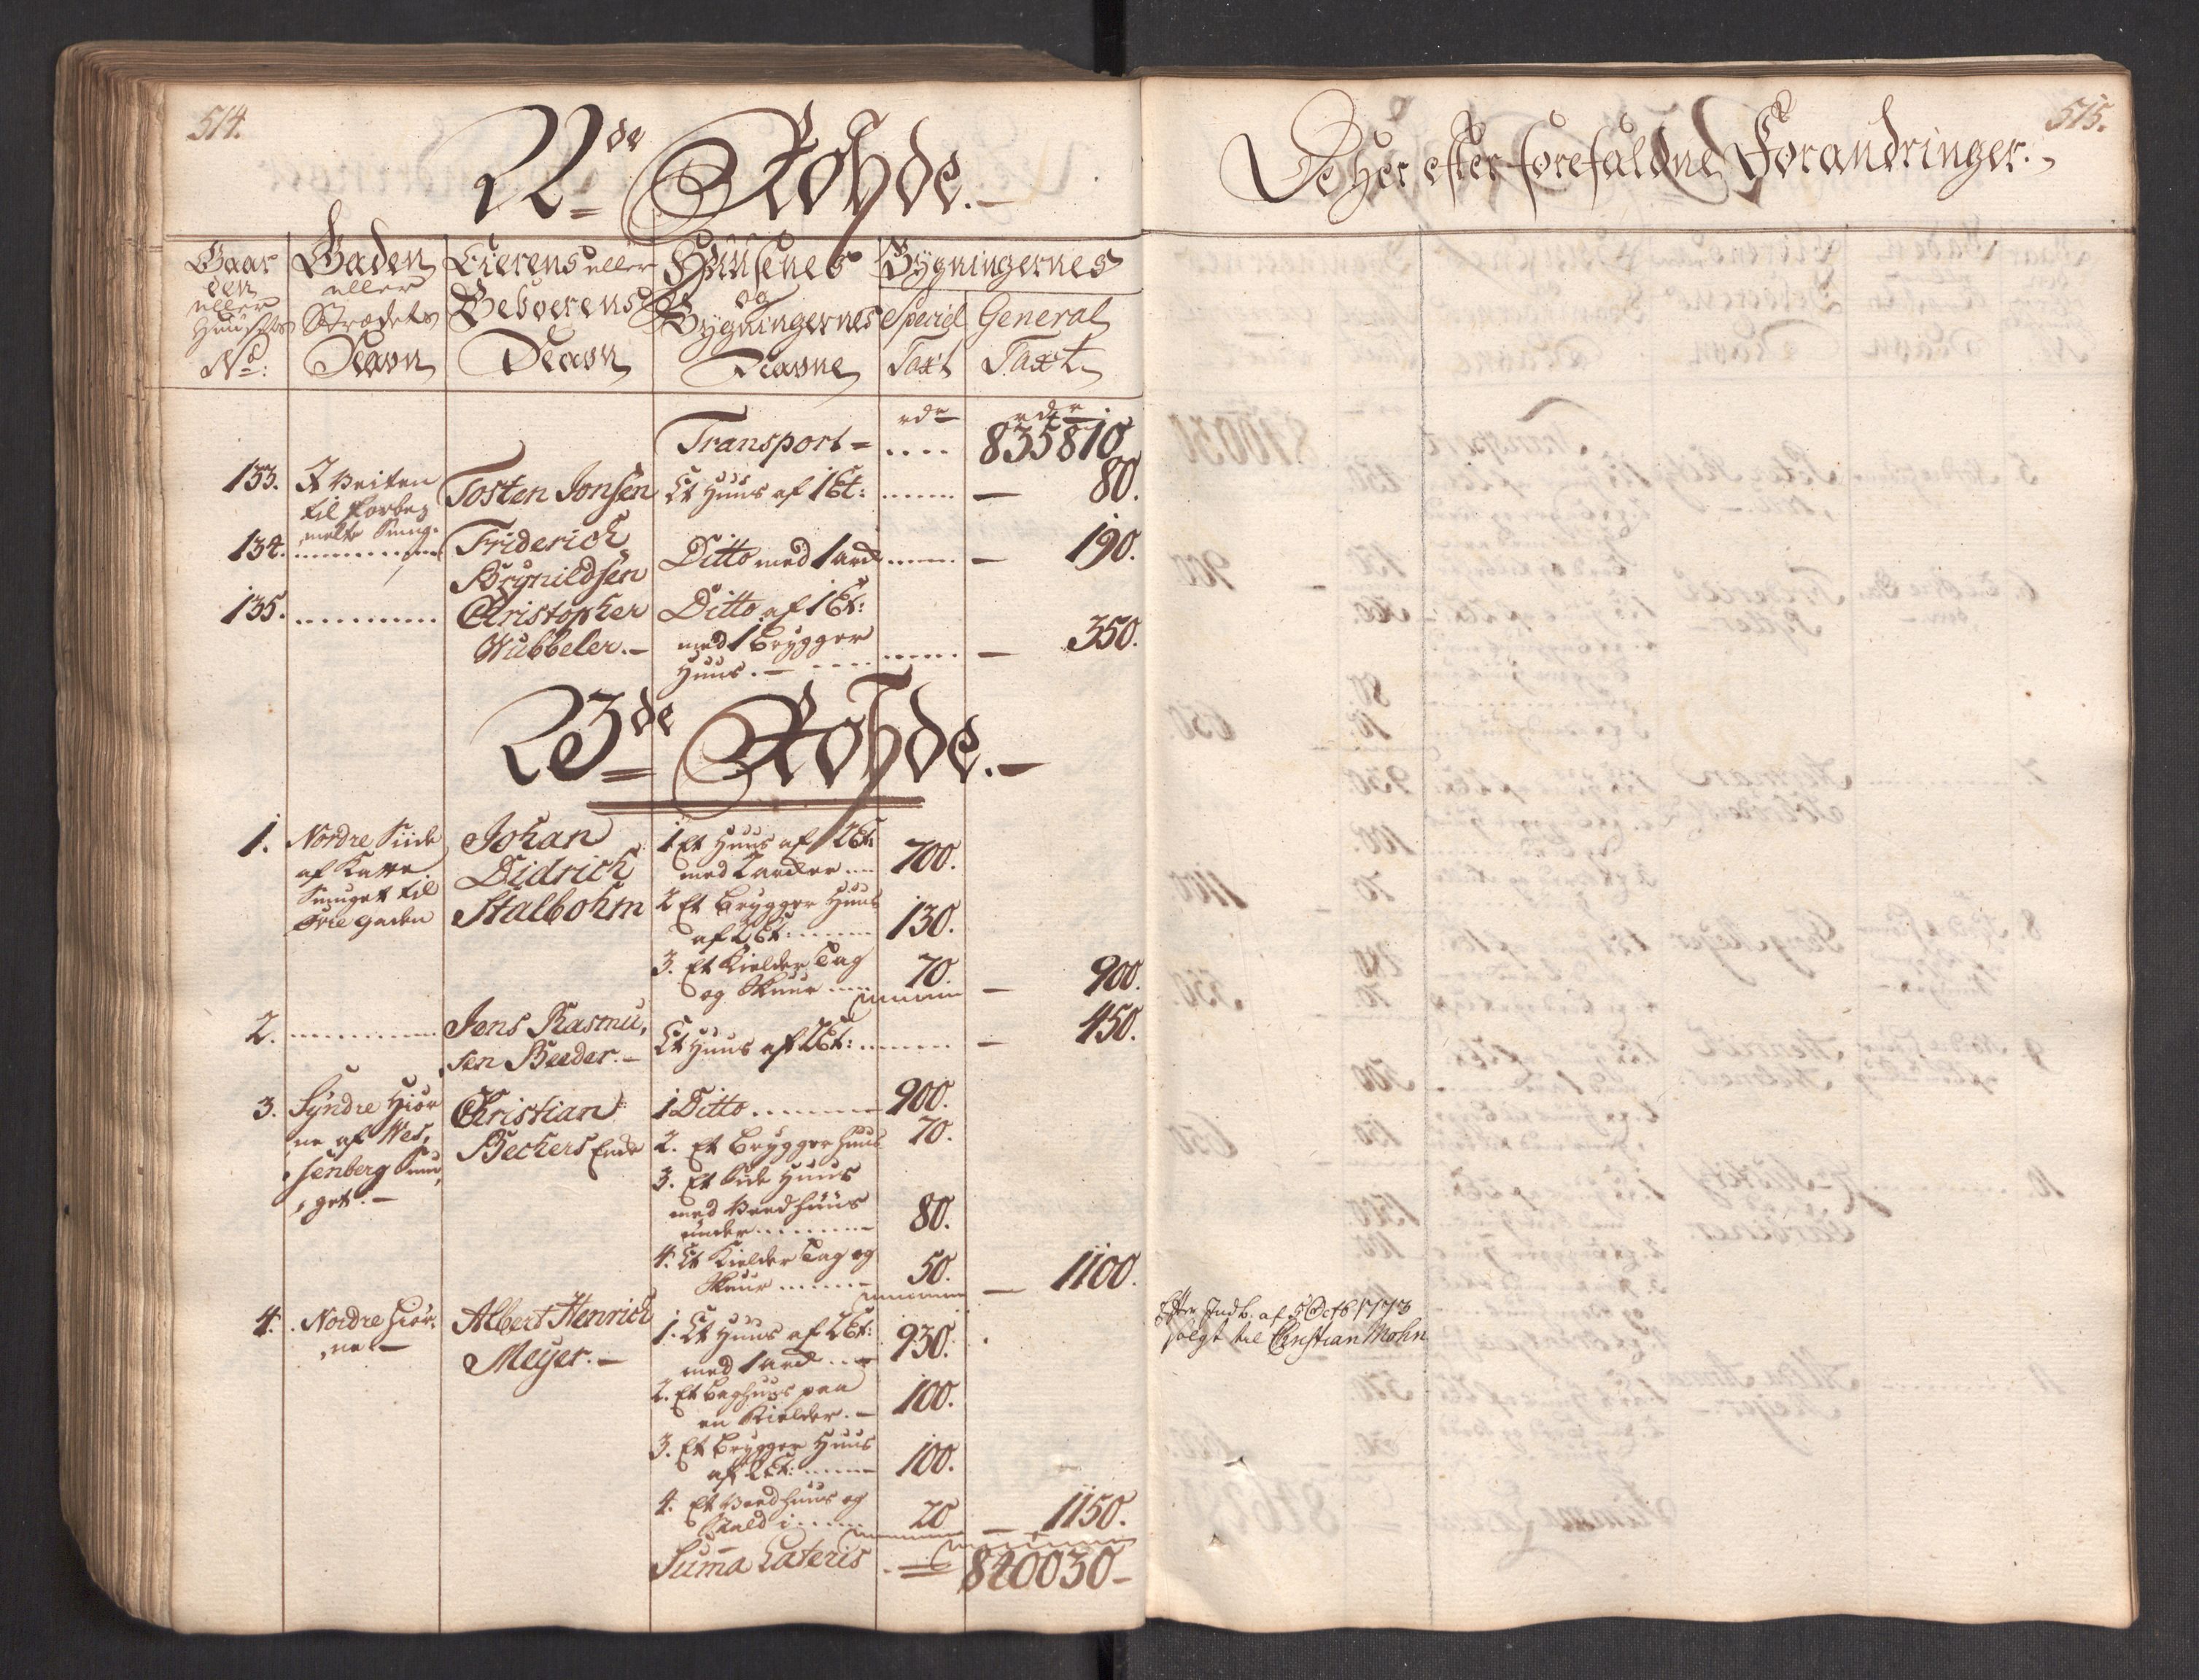 514.
22de Rohde.
Gaar Gaden Eierens eller Huusenes Bygningernes
den eller Beboerens og
eller Strædets Bygningernes Speciel General
Huusets
No: Navn Navn Navne Taxt Taxt
rdr rdr
Transport = .... 835810
133. I Veiten Tosten Jonsen Et Huus af 1 Et: ...... — 80.
til forbe,
melte Smug.
134. .......... Friderich Ditto med 1 ark ...... — 190.
Brynildsen
135. .......... Christopher Ditto af 1 Et:
Wubbeler. — med 1 Brygger
Huus. — .... ...... — 350.
23de Rohde. —
1. Nordre Siide Johan 1 Et Huus af 2 Et:
af Katte Didrich med 2 arker ... 700.
Smuget til Stalbohm 2 Et Brygger Huus
Øvregaden af 2 Et: ....... 130.
3. Et Kielder Tag
og Skuur .... 70. — 900.
2. .......... Jens Rasmu, Et Huus af 2 Et: ...... — 450.
sen Beeder. —
3. Syndre Hiør Christian 1 Ditto ....... 900.
ne af Wes, Beckers Enke 2. Et Brygger Huus 70.
senberg Smu, 3. Et Side Huus
get. — med Vedhuus
under ........ 80.
4. Et Kielder Tag og
Skuur ....... 50. — 1100.
4. Nordre Hiør, Albert Henrich 1. Et Huus af 2 Et:
ne — Meyer. — med 1 ark ... 930.
2. Et Baghuus paa
en Kielder. — 100.
3. Et Brygger Huus
af 2 Et: ...... 100.
4. Et Vedhuus og
Stald i ..... 20 — 1150.
Summa Lateris . = 840030 —
515.
De Her efter forefaldne Forandringer.
Efter Indb. af 5 Octb 1773
solgt til Christian Mohn